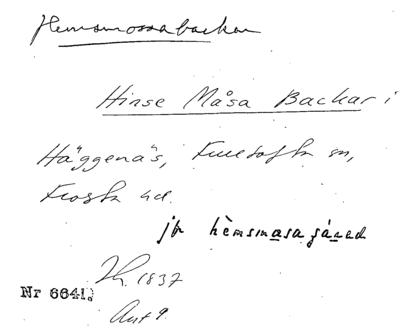 Hemsmossabackar
Hinse Måsa Backar i
Häggenäs, Fulltofta sn,
Frosta hd.
jfr hèmsmasagáred
Nr 6641.
Lh. 1837
Akt 9.